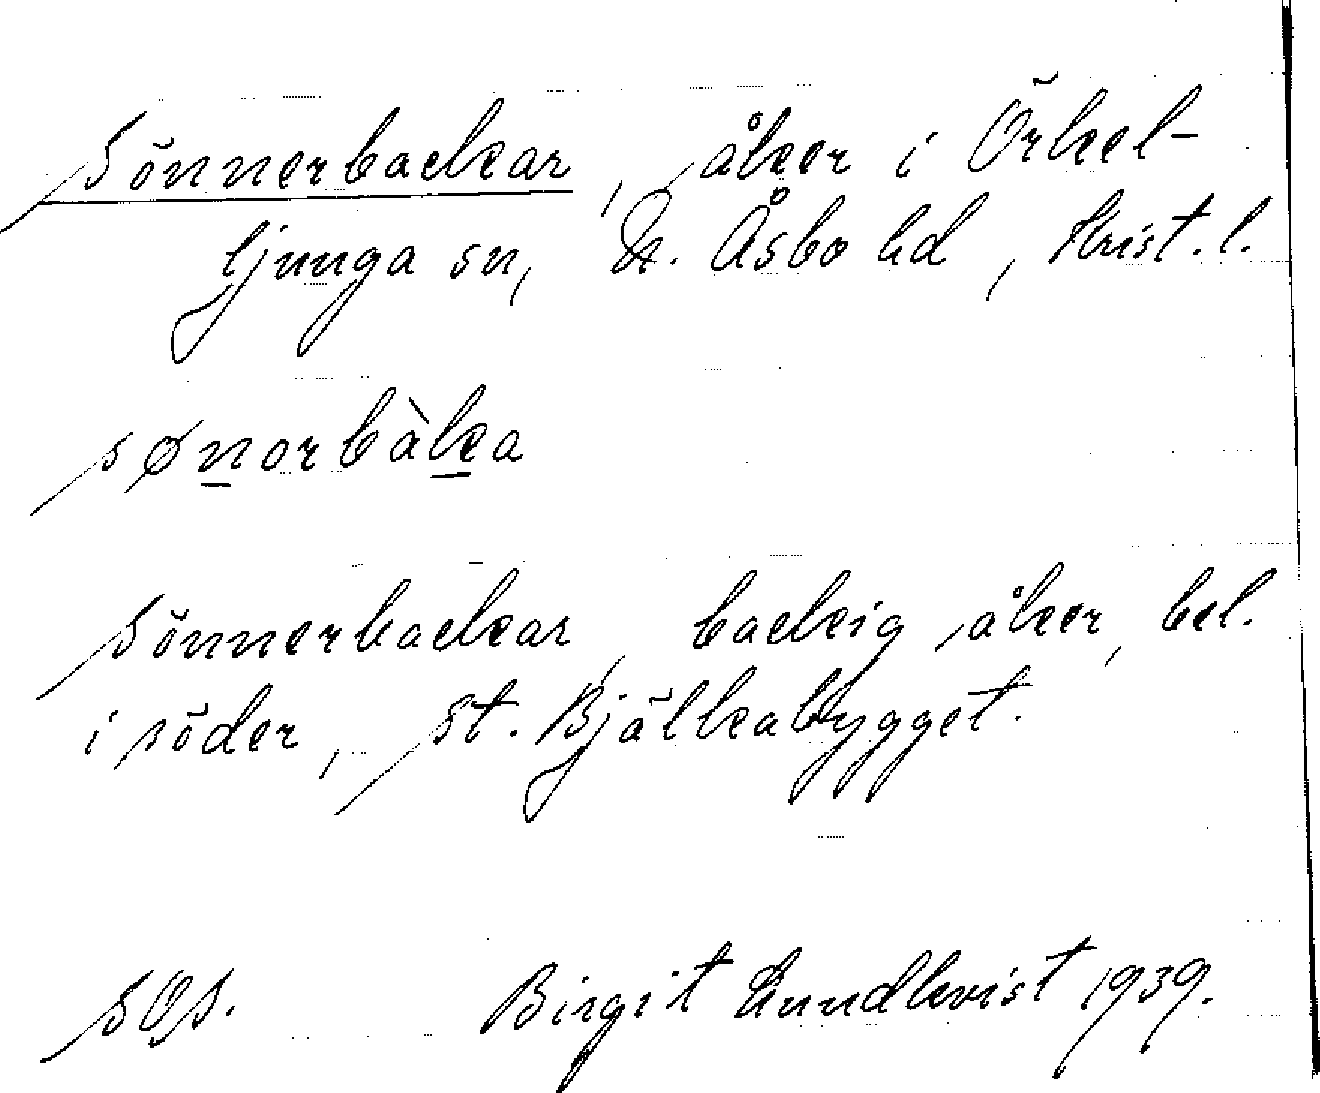 Sönnerbackar, åker i Örkel-
ljunga sn, N. Åsbo hd, Krist. l.
sønorbàka
Sönnerbackar, backig åker, bel.
i söder, St. Bjälkabygget.
sOs. Birgit Lundkvist 1939.